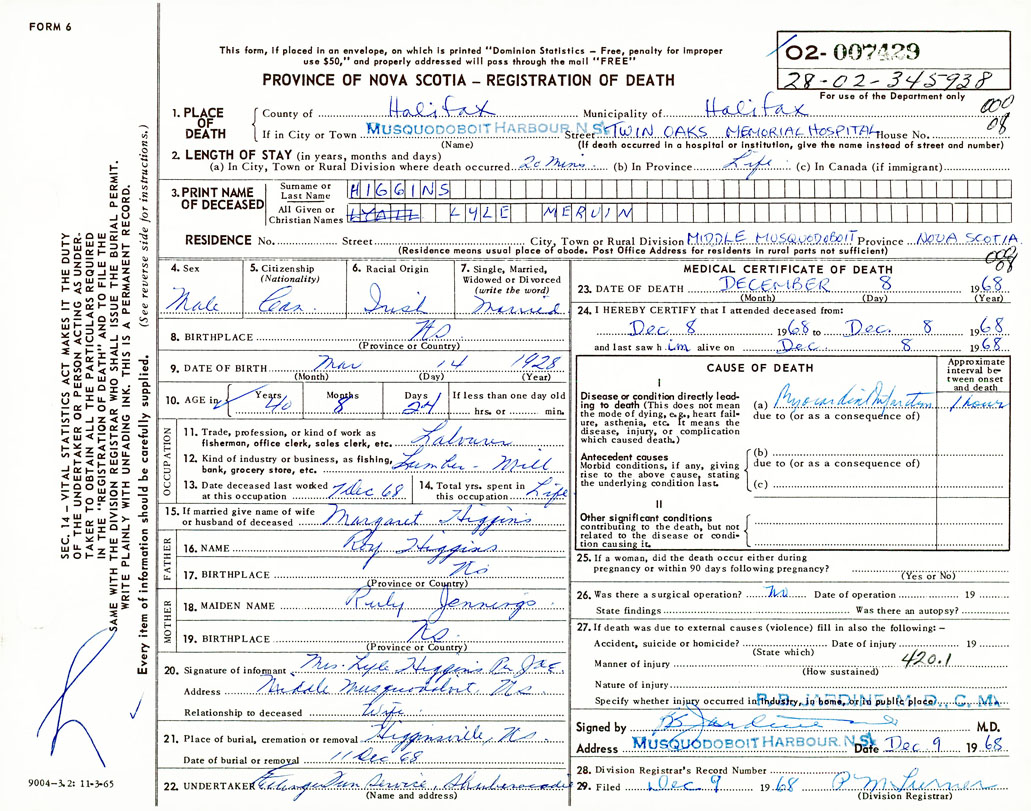 FORM 6
This form, if placed in an envelope, on which is printed "Dominion Statistics – Free, penalty for improper
use $50," and properly addressed will pass through the mail "FREE"
PROVINCE OF NOVA SCOTIA – REGISTRATION OF DEATH
02- 007429
28-02-345938
For use of the Department only
000
08
1. PLACE OF DEATH
County of Halifax Municipality of Halifax
If in City or Town MUSQUODOBOIT HARBOUR, N.S. Street TWIN OAKS MEMORIAL HOSPITAL House No.
(Name) (If death occurred in a hospital or institution, give the name instead of street and number)
2. LENGTH OF STAY (in years, months and days)
(a) In City, Town or Rural Division where death occurred 20 Mins. (b) In Province Life (c) In Canada (if immigrant)
3. PRINT NAME OF DECEASED
Surname or Last Name HIGGINS
All Given or Christian Names LYLE MERVIN
RESIDENCE No. Street City, Town or Rural Division MIDDLE MUSQUODOBOIT Province NOVA SCOTIA
(Residence means usual place of abode. Post Office Address for residents in rural parts not sufficient)
08
4. Sex
Male
5. Citizenship
(Nationality)
Can.
6. Racial Origin
Irish
7. Single, Married,
Widowed or Divorced
(write the word)
Married
8. BIRTHPLACE NS.
(Province or Country)
9. DATE OF BIRTH Mar 14 1928
(Month) (Day) (Year)
10. AGE in Years Months Days If less than one day old
40 8 24 hrs. or min.
OCCUPATION
11. Trade, profession, or kind of work as
fisherman, office clerk, sales clerk, etc. Labourer
12. Kind of industry or business, as fishing,
bank, grocery store, etc. Lumber - Mill
13. Date deceased last worked
at this occupation 7 Dec 68
14. Total yrs. spent in
this occupation Life
15. If married give name of wife
or husband of deceased Margaret Higgins
FATHER
16. NAME Roy Higgins
17. BIRTHPLACE NS
(Province or Country)
MOTHER
18. MAIDEN NAME Ruby Jennings
19. BIRTHPLACE NS.
(Province or Country)
20. Signature of informant Mrs. Lyle Higgins Per
Address Middle Musquodoboit, NS
Relationship to deceased Wife
21. Place of burial, cremation or removal Higginsville, NS
Date of burial or removal 11 Dec 68
22. UNDERTAKER Service, Shubenacadie
(Name and address)
MEDICAL CERTIFICATE OF DEATH
23. DATE OF DEATH DECEMBER 8 1968
(Month) (Day) (Year)
24. I HEREBY CERTIFY that I attended deceased from:
Dec 8 1968 to Dec. 8 1968
and last saw him alive on Dec. 8 1968
CAUSE OF DEATH
Approximate
interval be-
tween onset
and death
I
Disease or condition directly lead-
ing to death (This does not mean
the mode of dying, e.g., heart fail-
ure, asthenia, etc. It means the
disease, injury, or complication
which caused death.)
(a) Myocardial Infarction 1 hour
due to (or as a consequence of)
Antecedent causes
Morbid conditions, if any, giving
rise to the above cause, stating
the underlying condition last.
(b)
due to (or as a consequence of)
(c)
II
Other significant conditions
contributing to the death, but not
related to the disease or condi-
tion causing it.
25. If a woman, did the death occur either during
pregnancy or within 90 days following pregnancy?
(Yes or No)
26. Was there a surgical operation? No Date of operation 19
State findings Was there an autopsy?
27. If death was due to external causes (violence) fill in also the following: –
Accident, suicide or homicide? Date of injury 19
(State which)
Manner of injury 420.1
(How sustained)
Nature of injury
Specify whether injury occurred in industry, in home, or in public place
R.B. JARDINE, M.D., C.M.
Signed by RB Jardine M.D.
Address MUSQUODOBOIT HARBOUR, N.S. Date Dec 9 1968
28. Division Registrar's Record Number
29. Filed Dec 9 1968
(Division Registrar)
SEC. 14 – VITAL STATISTICS ACT MAKES IT THE DUTY
OF THE UNDERTAKER OR PERSON ACTING AS UNDER-
TAKER TO OBTAIN ALL THE PARTICULARS REQUIRED
IN THE "REGISTRATION OF DEATH" AND TO FILE THE
SAME WITH THE DIVISION REGISTRAR WHO SHALL ISSUE THE BURIAL PERMIT.
WRITE PLAINLY WITH UNFADING INK. THIS IS A PERMANENT RECORD.
Every item of information should be carefully supplied. (See reverse side for instructions.)
9004–3.2: 11-3-65